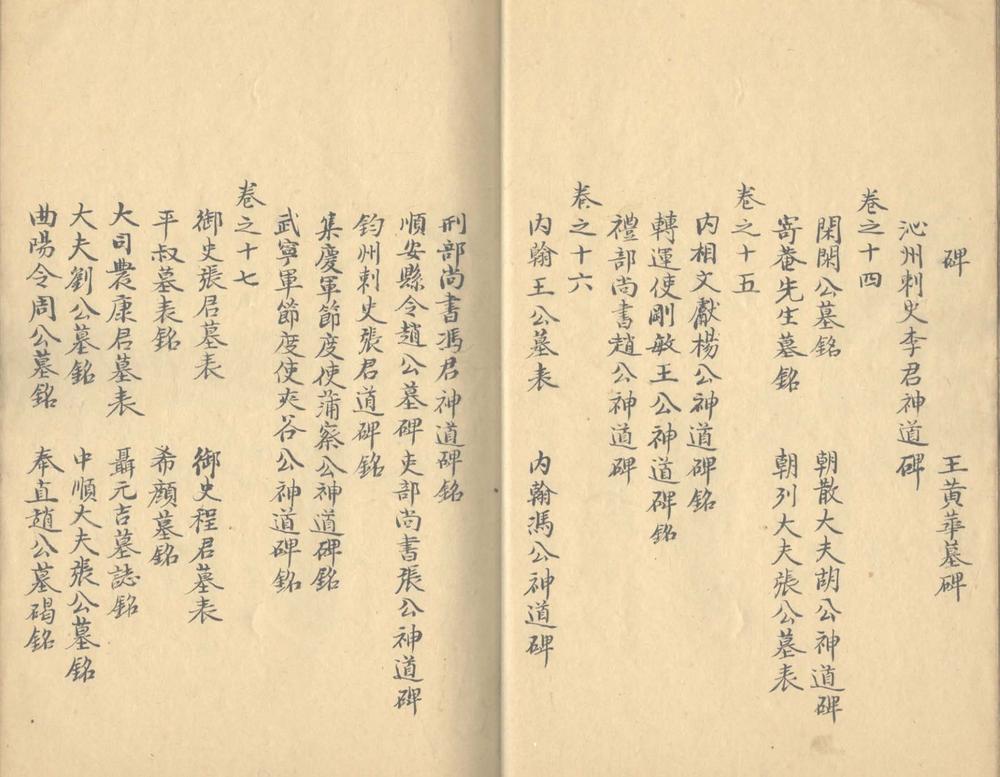 碑 王黃華墓碑
沁州刺史李君神道碑
卷之十四
閑閑公墓銘 朝散大夫胡公神道碑
寄菴先生墓銘 朝列大夫張公墓表
卷之十五
內相文獻楊公神道碑銘
轉運使剛敏王公神道碑銘
禮部尚書趙公神道碑
卷之十六
內翰王公墓表 內翰馮公神道碑
刑部尚書馮君神道碑銘
順安縣令趙公墓碑吏部尚書張公神道碑
鈞州刺史張君道碑銘
集慶軍節度使蒲察公神道碑銘
武寧軍節度使夾谷公神道碑銘
卷之十七
御史張君墓表 御史程君墓表
平叔墓表銘 希顏墓銘
大司農康君墓表 聶元吉墓誌銘
大夫劉公墓銘 中順大夫張公墓銘
曲陽令周公墓銘 奉直趙公墓碣銘